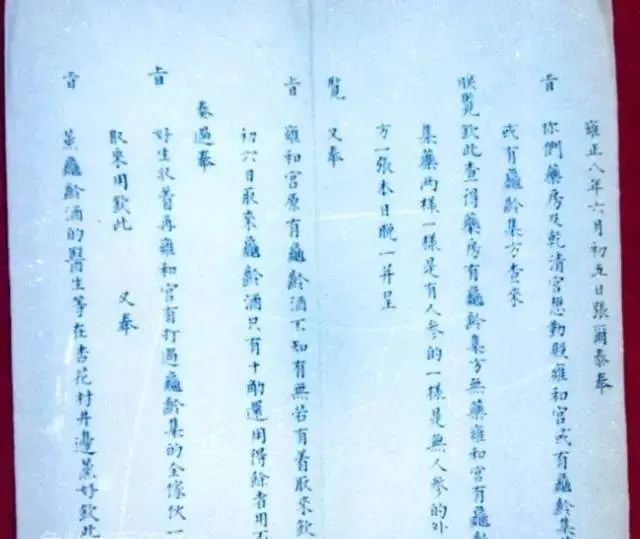 雍正八年六月初五日張爾泰奉
旨你們藥房及乾清宮懋勤殿雍和宮或有龜齡集
或有龜齡集方查來
朕覽欽此查得藥房有龜齡集方無藥雍和宮有龜齡
集藥兩樣一樣是有人參的一樣是無人參的外
方一張本日晚一并呈
覽 又奉
旨雍和宮原有龜齡酒不知有無若有着取來欽
初六日取來龜齡酒只有十酌還用得餘者用不
奏過奉
旨好生收着再雍和宮有打過龜齡集的全傢伙一
取來用欽此 又奉
旨蒸龜齡酒的醫生等在杏花村井邊蒸好欽此